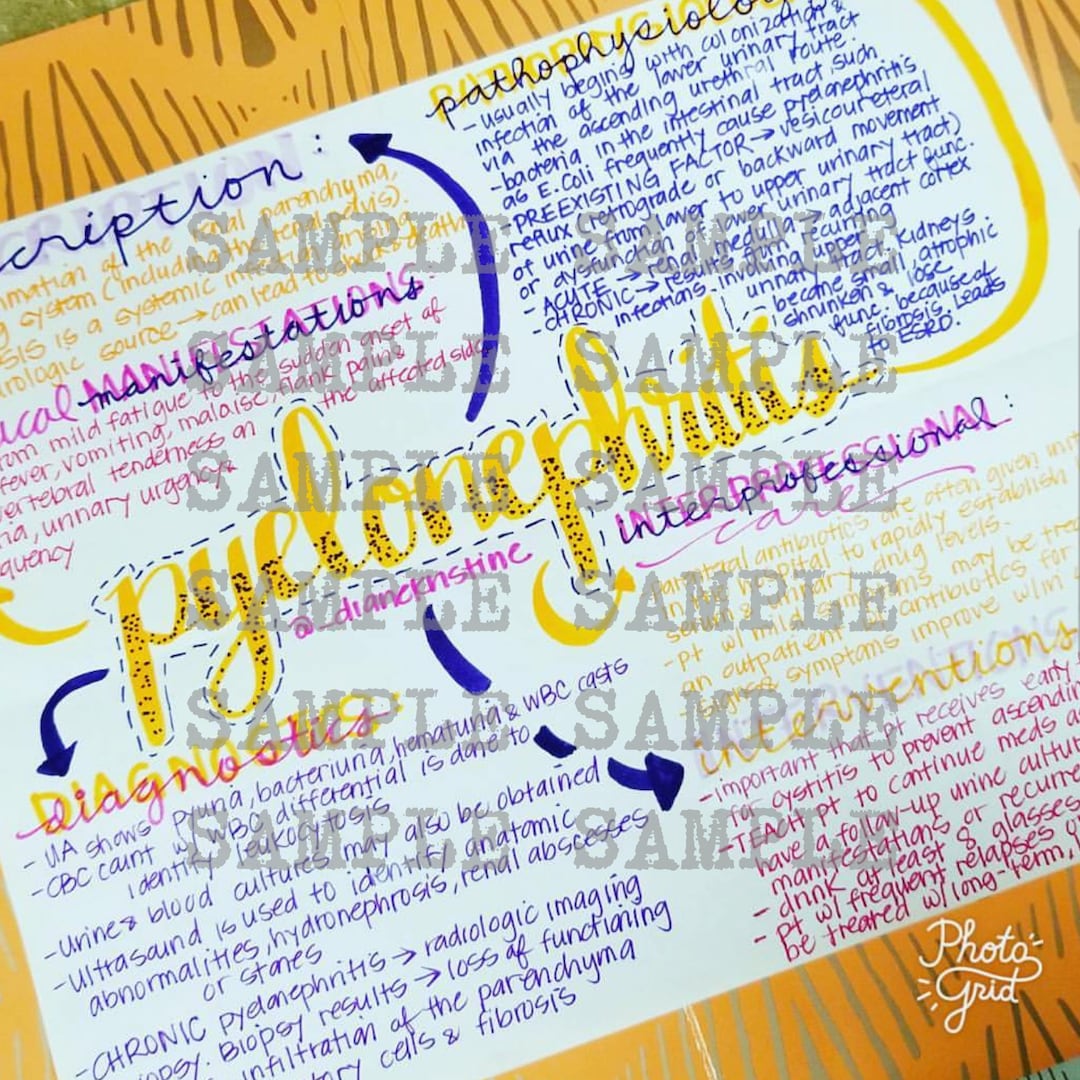 pathophysiology
- usually begins with colonization &
infection of the lower urinary tract
via the ascending urethral route.
- bacteria in the intestinal tract, such
as E. Coli frequently cause pyelonephritis
- PREEXISTING FACTOR → vesicoureteral
reflux (retrograde or backward movement
of urine from lower to upper urinary tract)
or dysfunction of lower urinary tract func.
- ACUTE → renal medulla → adjacent cortex
- CHRONIC → results from recurring
infections involving upper
urinary tract. Kidneys
become small, atrophic
shrunken & lose
func. because of
fibrosis. Leads
to ESRD.
cription:
mmation of the renal parenchyma,
g system (including the renal pelvis).
SIS is a systemic infection arising
urologic source → can lead to shock & death
ical MANIFESTATIONS:
manifestations
rom mild fatigue to the sudden onset of
fever, vomiting, malaise, flank pain &
vertebral tenderness on the affected side
ia, urinary urgency &
quency
pyelonephritis
@_dianekristine
INTERPROFESSIONAL
interprofessional:
care
- parenteral antibiotics are often given initi
in the hospital to rapidly establish
serum & urinary drug levels.
- pt w/ mild symptoms may be trea
an outpatient w/ antibiotics for
- signs & symptoms improve w/in
INTERVENTIONS
interventions
- important that pt receives early
for cystitis to prevent ascendin
- TEACH pt to continue meds a
have a follow-up urine cultur
manifestations or recurre
- drink at least 8 glasses
- pt w/ frequent relapses o
be treated w/ long-term, l
DIAGNOSTICS:
diagnostics
- UA shows pyuria, bacteriuria, hematuria & WBC casts
- CBC count w/ WBC differential is done to
identify leukocytosis
- urine & blood cultures may also be obtained
- ultrasound is used to identify anatomic
abnormalities, hydronephrosis, renal abscesses
or stones
- CHRONIC pyelonephritis → radiologic imaging
iopsy. Biopsy results → loss of functioning
infiltration of the parenchyma
tory cells & fibrosis
SAMPLE SAMPLE
SAMPLE SAMPLE
SAMPLE SAMPLE
SAMPLE SAMPLE
SAMPLE SAMPLE
SAMPLE SAMPLE
Photo
Grid